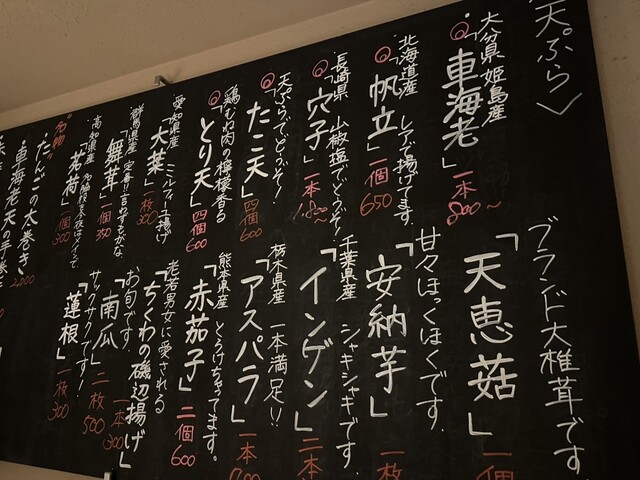 天ぷら
大分県 姫島産
「車海老」一本 800〜
北海道産 レアで揚げてます。
「帆立」一個 650
長崎県 山椒塩でどうぞ!
「穴子」一本 1,800〜
天ぷらでどうぞ!
「たこ天」四個 600
鶏むね肉の檸檬香る
「とり天」四個 600
愛知県産 ミルフィーユ揚げ
「大葉」一枚 300
群馬県産 定番!!
「舞茸」一個 350
高知県産
「茗荷」一個 300
"名物"
たんごの太巻き 2,000
車海老天の手巻
ブランド大椎茸です
「天恵菇」一個
甘々ほっくほくです。
「安納芋」一枚
千葉県産 シャキシャキです
「インゲン」二本
栃木県産 一本満足!!
「アスパラ」一本
熊本県産 とろけちゃってます。
「赤茄子」二個 600
老若男女に愛される
「ちくわの磯辺揚げ」一本 300
お旬です
「南瓜」二枚 500
サクサクです!
「蓮根」一枚 300